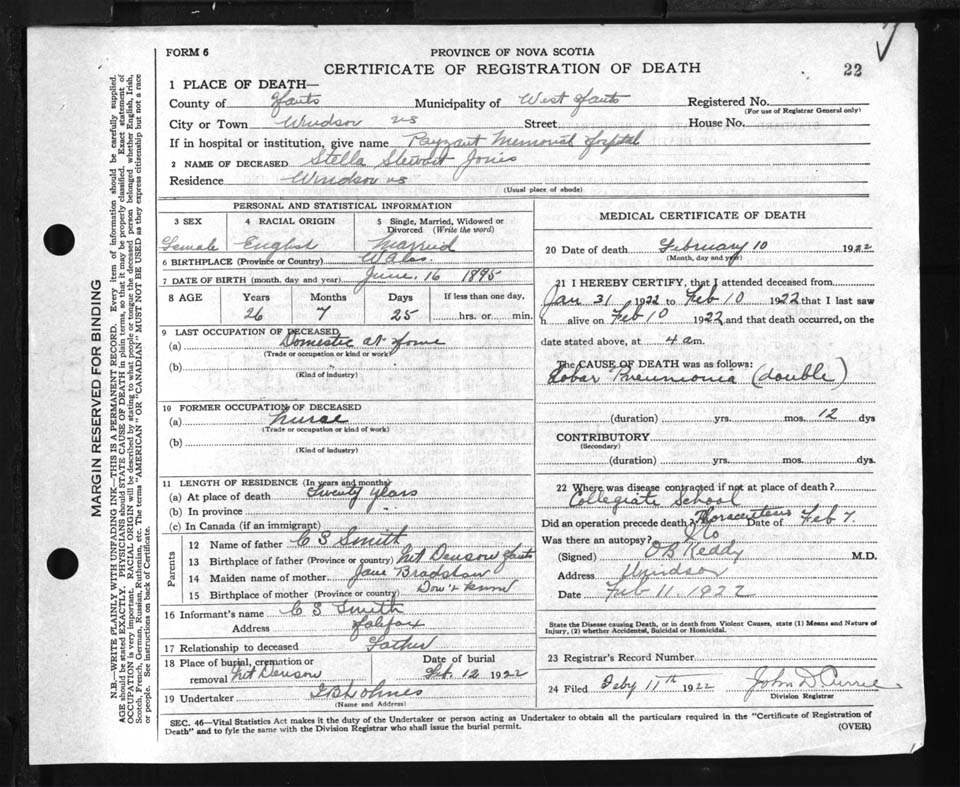 FORM 6
PROVINCE OF NOVA SCOTIA
CERTIFICATE OF REGISTRATION OF DEATH
22
1 PLACE OF DEATH—
County of Hants Municipality of West Hants Registered No.
(For use of Registrar General only)
City or Town Windsor NS Street House No.
If in hospital or institution, give name Payzant Memorial Hospital
2 NAME OF DECEASED Stella Stewart Jones
Residence Windsor NS
(Usual place of abode)
PERSONAL AND STATISTICAL INFORMATION
3 SEX 4 RACIAL ORIGIN 5 Single, Married, Widowed or Divorced (Write the word)
Female English Married
6 BIRTHPLACE (Province or Country) Wales.
7 DATE OF BIRTH (month, day and year) June 16 1895
8 AGE Years Months Days If less than one day,
26 7 25 hrs. or min.
9 LAST OCCUPATION OF DECEASED
(a) Domestic at home
(Trade or occupation or kind or work)
(b)
(Kind of industry)
10 FORMER OCCUPATION OF DECEASED
(a) Nurse
(Trade or occupation or kind of work)
(b)
(Kind of industry)
11 LENGTH OF RESIDENCE (In years and months)
(a) At place of death Twenty Years
(b) In province
(c) In Canada (if an immigrant)
Parents
12 Name of father C S Smith
13 Birthplace of father (Province or country) Mt Denson Hants
14 Maiden name of mother Jane Bradshaw
15 Birthplace of mother (Province or country) Don't know
16 Informant's name C S Smith
Address Halifax
17 Relationship to deceased Father
18 Place of burial, cremation or removal Mt Denson Date of burial Feb. 12 1922
19 Undertaker
(Name and Address)
MEDICAL CERTIFICATE OF DEATH
20 Date of death February 10 1922
(Month, day and year)
21 I HEREBY CERTIFY, that I attended deceased from
Jan 31 1922 to Feb 10 1922 that I last saw
h alive on Feb 10 1922, and that death occurred, on the
date stated above, at 4 am.
The CAUSE OF DEATH was as follows:
Lobar Pneumonia (double)
(duration) yrs. mos. 12 dys
CONTRIBUTORY
(Secondary)
(duration) yrs. mos. dys.
22 Where was disease contracted if not at place of death?
Collegiate School
Did an operation precede death? Thoracentesis Date of Feb 7.
Was there an autopsy? No
(Signed) O B Keddy M.D.
Address Windsor
Date Feb 11. 1922
State the Disease causing Death, or in death from Violent Causes, state (1) Means and Nature of
Injury, (2) whether Accidental, Suicidal or Homicidal.
23 Registrar's Record Number
24 Filed Feby 11th 1922 John D. Currie
Division Registrar
SEC. 46—Vital Statistics Act makes it the duty of the Undertaker or person acting as Undertaker to obtain all the particulars required in the "Certificate of Registration of
Death" and to fyle the same with the Division Registrar who shall issue the burial permit.
(OVER)
MARGIN RESERVED FOR BINDING
N.B.—WRITE PLAINLY WITH UNFADING INK—THIS IS A PERMANENT RECORD. Every item of information should be carefully supplied.
AGE should be stated EXACTLY. PHYSICIANS should STATE CAUSE OF DEATH in plain terms, so that it may be properly classified. Exact statement of
OCCUPATION is very important. RACIAL ORIGIN will be described by stating to what people or tongue the deceased person belonged whether English, Irish,
Scotch, French, German, Russian, Ruthenian, etc. The terms "AMERICAN" OR "CANADIAN" MUST NOT BE USED as they express citizenship but not a race
or people. See instructions on back of Certificate.